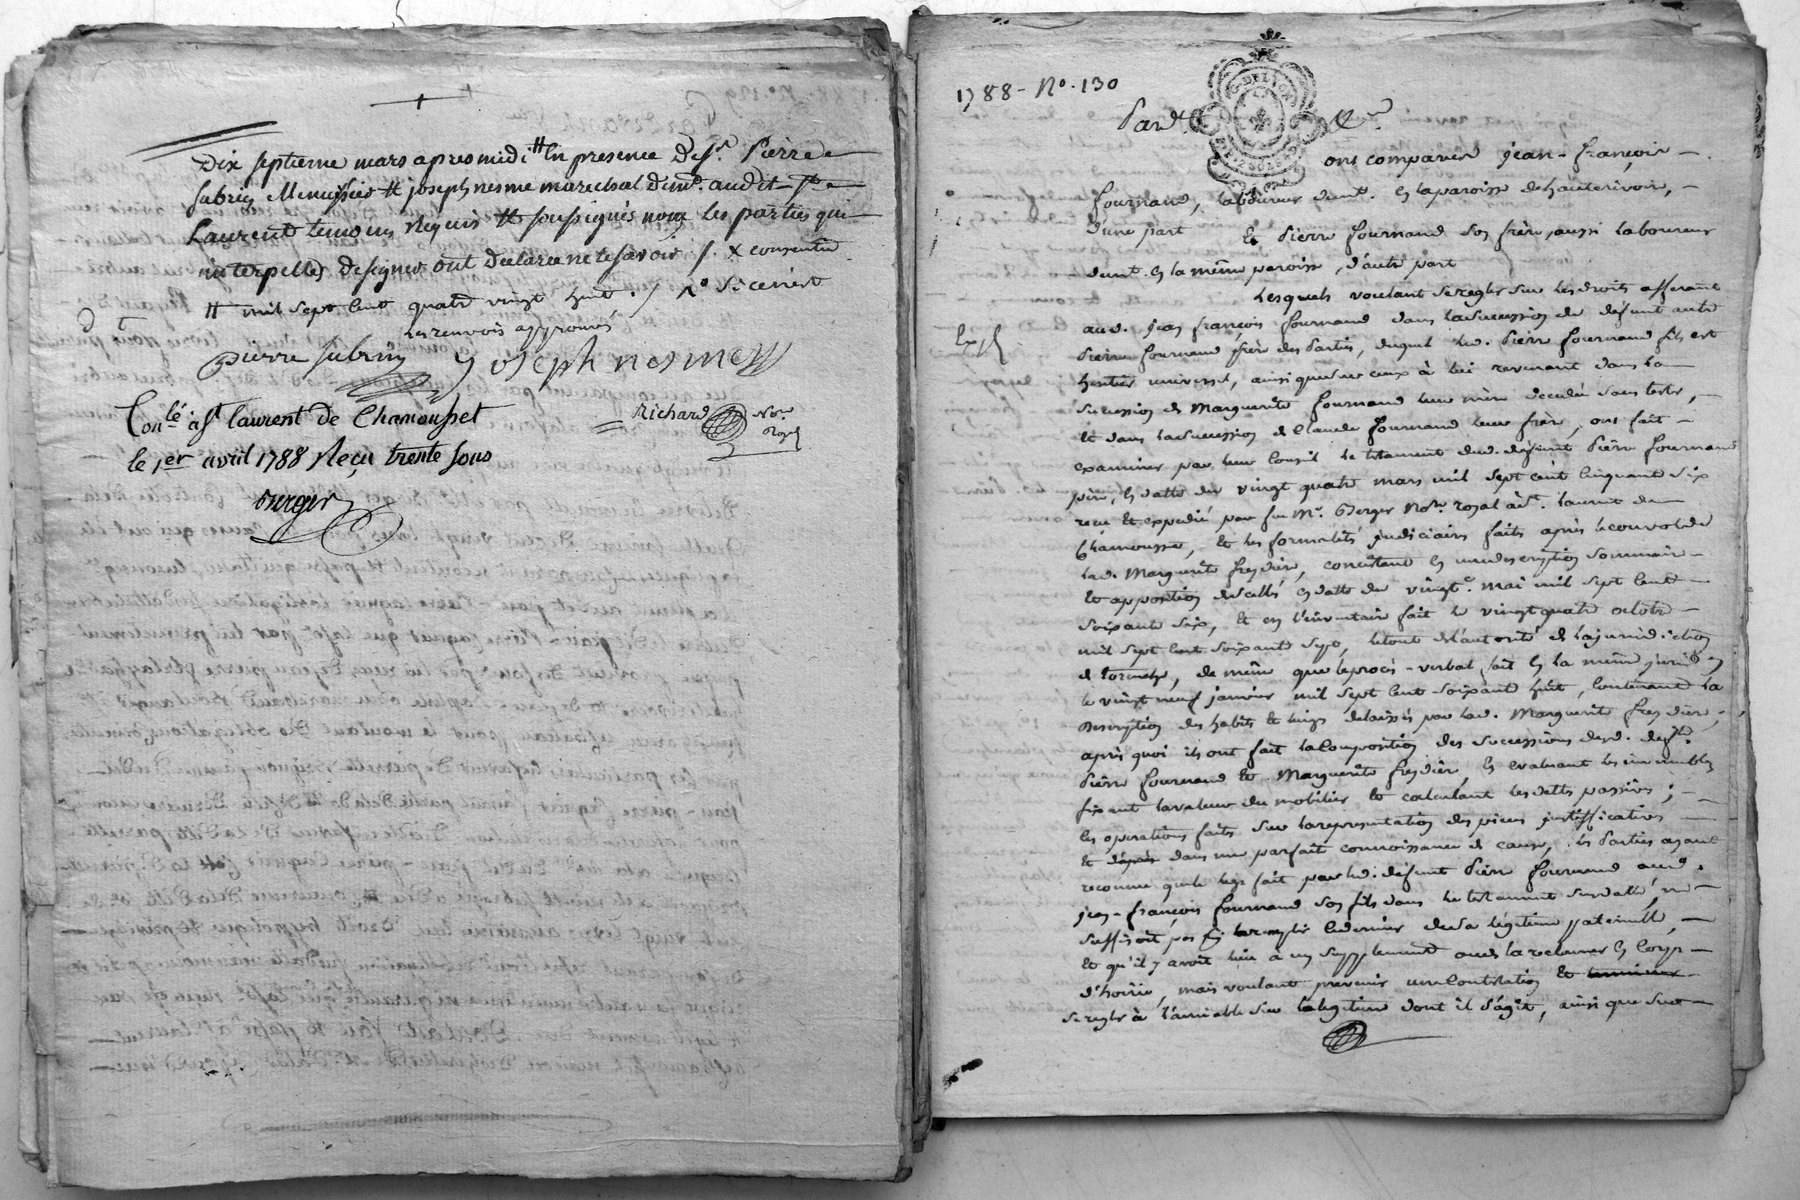 Dix septieme mars apres midi # En presence De sr. Pierre
fabrin Menuisier # joseph nesme marechal dem.t audit St
Laurent temoins Requis # soussignés non les parties qui
interpellés de signer ont declaré ne le savoir /. X consentu
# mil sept cent quatre vingt huit ./
Les renvois approuvés
pierre fabrin joseph nesme
Con.lé à St laurent de Chamousset
le 1er avril 1788 Reçu trente sous
Berger
Richard No.re
Royal
1788 - No. 130
Pard.t
G. DE LYON
ont comparu jean-françois
fournand, laboureur dem.t en la paroisse de hauterivoire,
d'une part Et Pierre fournand son frère, aussi laboureur
dem.t en la même paroisse, d'autre part
Lesquels voulant se regler sur les droits afferant
aud. jean françois fournand dans la succession de défunt autre
Pierre fournand père des Parties, duquel led. Pierre fournand fils est
heritier universel, ainsi que sur ceux à lui revenant dans la
succession de Marguerite fournand leur mère decedée sans tester,
Et dans la succession de Claude fournand leur frere, ont fait
Expé
examiner par leur Conseil le testament dud. défunt Pierre fournand
père, en datte du vingt quatre mars mil sept cent cinquante six
reçu Et expedié par feu Mr. Berger No.re royal à St. laurent de
Chamousset, Et les formalités judiciaires faites après le convol de
lad. Marguerite freydiere, consistant en une description sommaire
Et apposition de scellés en datte du vingt mai mil sept cent
soixante six, Et en l'inventaire fait le vingt quatre octobre
mil sept cent soixante sept, le tout de l'autorité de la jurisdiction
de, de même que le procès-verbal fait en la même jurid.on
le vingt neuf janvier mil sept cent soixante huit, contenant la
Description des habits Et linges delaissés par lad. Marguerite freydiere,
après quoi ils ont fait la Composition des successions desd. defts.
Pierre fournand Et Marguerite freydiere, en evaluant les immeubles
fixant la valeur du mobilier Et calculant les dettes passives;
les operations faites sur la representation des pieces justifficatives
Et dans une parfaite connoissance de cause, les Parties ayant
reconnu que le legs fait par led. défunt Pierre fournand aud.
jean-françois fournand son fils dans le testament susdatté, ne
suffisoit pas pour remplir ce dernier de sa légitime paternelle,
Et qu'il y avoit lieu à un supplement ou de la reclamer en Corps
d'hoirie, mais voulant prevenir une Contestation Et
se regler à l'amiable sur la legitime dont il s'agit, ainsi que sur